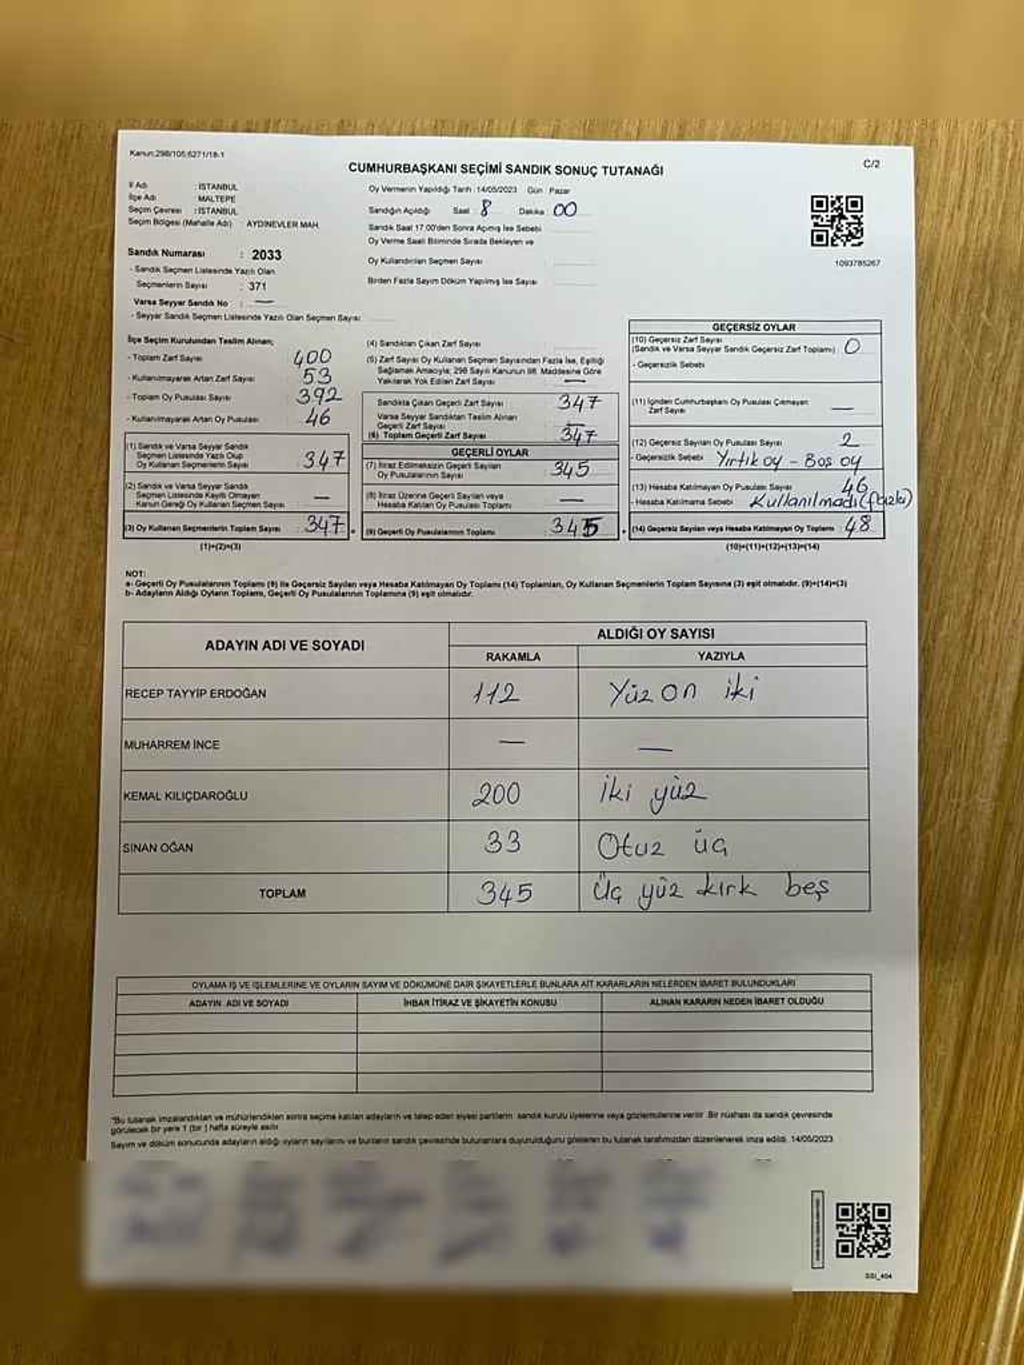 Kanun:298/105;6271/18-1
C/2
CUMHURBAŞKANI SEÇİMİ SANDIK SONUÇ TUTANAĞI
İl Adı : İSTANBUL
İlçe Adı : MALTEPE
Seçim Çevresi : İSTANBUL
Seçim Bölgesi (Mahalle Adı) AYDINEVLER MAH.
Oy Vermenin Yapıldığı Tarih :14/05/2023 Gün : Pazar
Sandığın Açıldığı Saat 8 Dakika 00
Sandık Saat 17.00'den Sonra Açılmış İse Sebebi
Oy Verme Saati Bitiminde Sırada Bekleyen ve
Oy Kullandırılan Seçmen Sayısı
Birden Fazla Sayım Döküm Yapılmış İse Sayısı
1093785267
Sandık Numarası : 2033
- Sandık Seçmen Listesinde Yazılı Olan
Seçmenlerin Sayısı : 371
Varsa Seyyar Sandık No : —
- Seyyar Sandık Seçmen Listesinde Yazılı Olan Seçmen Sayısı
İlçe Seçim Kurulundan Teslim Alınan;
- Toplam Zarf Sayısı 400
- Kullanılmayarak Artan Zarf Sayısı 53
- Toplam Oy Pusulası Sayısı 392
- Kullanılmayarak Artan Oy Pusulası 46
(1) Sandık ve Varsa Seyyar Sandık
Seçmen Listesinde Yazılı Olup
Oy Kullanan Seçmenlerin Sayısı 347
(2) Sandık ve Varsa Seyyar Sandık
Seçmen Listesinde Kayıtlı Olmayan
Kanun Gereği Oy Kullanan Seçmen Sayısı —
(3) Oy Kullanan Seçmenlerin Toplam Sayısı 347
(1)+(2)=(3)
(4) Sandıktan Çıkan Zarf Sayısı
(5) Zarf Sayısı Oy Kullanan Seçmen Sayısından Fazla İse, Eşitliği
Sağlamak Amacıyla; 298 Sayılı Kanunun 98. Maddesine Göre
Yakılarak Yok Edilen Zarf Sayısı —
Sandıkta Çıkan Geçerli Zarf Sayısı 347
Varsa Seyyar Sandıktan Teslim Alınan
Geçerli Zarf Sayısı —
(6) Toplam Geçerli Zarf Sayısı 347
GEÇERLİ OYLAR
(7) İtiraz Edilmeksizin Geçerli Sayılan
Oy Pusulasının Sayısı 345
(8) İtiraz Üzerine Geçerli Sayılan veya
Hesaba Katılan Oy Pusulası Toplamı —
(9) Geçerli Oy Pusulalarının Toplamı 345
GEÇERSİZ OYLAR
(10) Geçersiz Zarf Sayısı
(Sandık ve Varsa Seyyar Sandık Geçersiz Zarf Toplamı) 0
- Geçersizlik Sebebi
(11) İçinden Cumhurbaşkanı Oy Pusulası Çıkmayan
Zarf Sayısı —
(12) Geçersiz Sayılan Oy Pusulası Sayısı 2
- Geçersizlik Sebebi Yırtık oy - Boş oy
(13) Hesaba Katılmayan Oy Pusulası Sayısı 46
- Hesaba Katılmama Sebebi Kullanılmadı (fazla)
(14) Geçersiz Sayılan veya Hesaba Katılmayan Oy Toplamı 48
(10)+(11)+(12)+(13)=(14)
NOT:
a- Geçerli Oy Pusulalarının Toplamı (9) ile Geçersiz Sayılan veya Hesaba Katılmayan Oy Toplamı (14) Toplamları, Oy Kullanan Seçmenlerin Toplam Sayısına (3) eşit olmalıdır. (9)+(14)=(3)
b- Adayların Aldığı Oyların Toplamı, Geçerli Oy Pusulalarının Toplamına (9) eşit olmalıdır.
ADAYIN ADI VE SOYADI
ALDIĞI OY SAYISI
RAKAMLA YAZIYLA
RECEP TAYYİP ERDOĞAN 112 Yüz on iki
MUHARREM İNCE — —
KEMAL KILIÇDAROĞLU 200 iki yüz
SİNAN OĞAN 33 Otuz üç
TOPLAM 345 Üç yüz kırk beş
OYLAMA İŞ VE İŞLEMLERİNE VE OYLARIN SAYIM VE DÖKÜMÜNE DAİR ŞİKAYETLERLE BUNLARA AİT KARARLARIN NELERDEN İBARET BULUNDUKLARI
ADAYIN ADI VE SOYADI İHBAR İTİRAZ VE ŞİKAYETİN KONUSU ALINAN KARARIN NEDEN İBARET OLDUĞU
*Bu tutanak imzalandıktan ve mühürlendikten sonra seçime katılan adayların ve talep eden siyasi partilerin sandık kurulu üyelerine veya gözlemcilerine verilir. Bir nüshası da sandık çevresinde
görülecek bir yere 1 (bir ) hafta süreyle asılır.
Sayım ve döküm sonucunda adayların aldığı oyların sayılarını ve bunların sandık çevresinde bulunanlara duyurulduğunu gösteren bu tutanak tarafımızdan düzenlenerek imza edildi. 14/05/2023
SSI_404